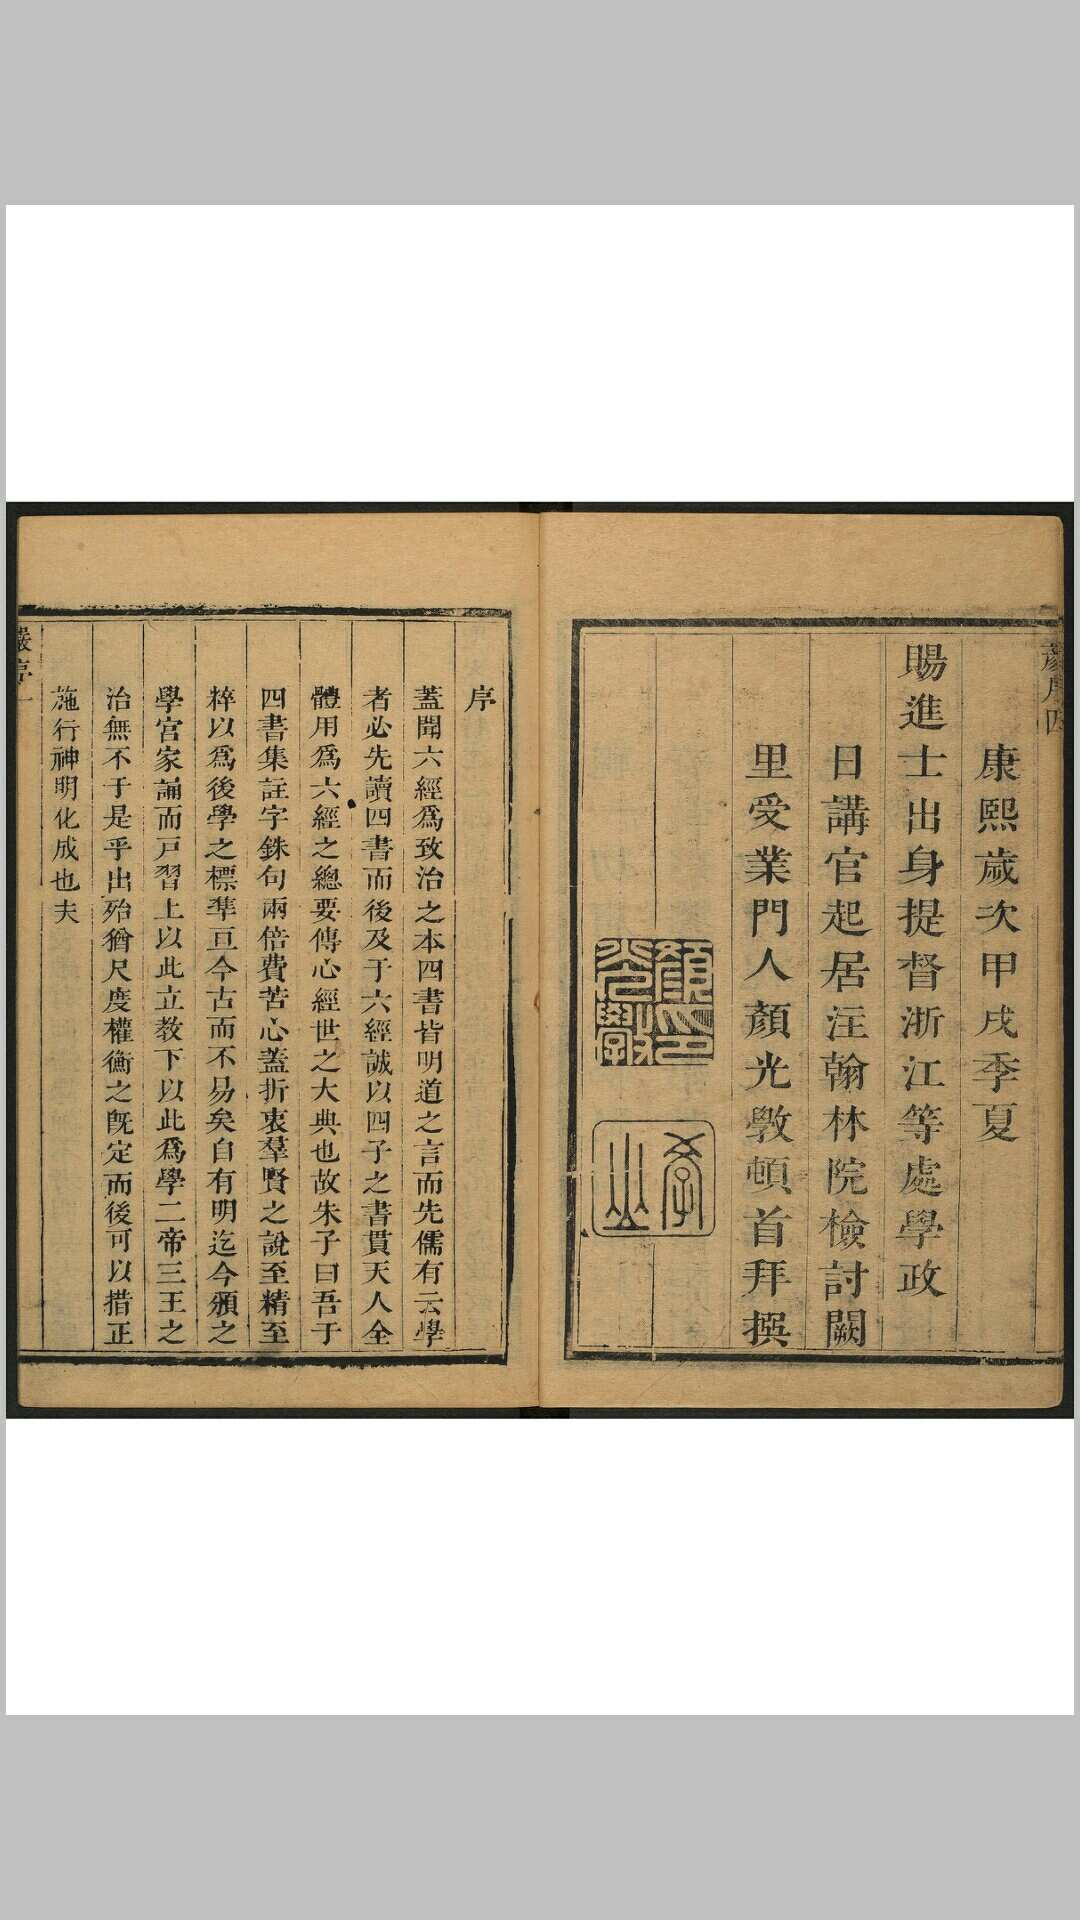 顏序四
康熙歲次甲戌季夏
賜進士出身提督浙江等處學政
日講官起居注翰林院檢討闕
里受業門人顏光斆頓首拜撰
顏光斆印
學山
序
蓋聞六經爲致治之本四書皆明道之言而先儒有云學
者必先讀四書而後及于六經誠以四子之書貫天人全
體用爲六經之總要傳心經世之大典也故朱子曰吾于
四書集註字銖句兩倍費苦心蓋折衷羣賢之說至精至
粹以爲後學之標準亘今古而不易矣自有明迄今頒之
學宫家誦而戸習上以此立教下以此爲學二帝三王之
治無不于是乎出殆猶尺度權衡之旣定而後可以措正
施行神明化成也夫
嚴序一